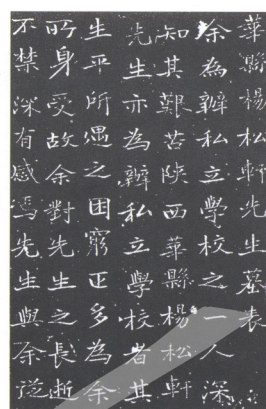 華縣楊松軒先生墓表
余為辦私立學校之一人深
知其艱苦陝西華縣楊松軒
先生亦為辦私立學校者其
生平所遇之困窮正多為余
所身受故余對先生之長逝
不禁深有感焉先生與余從